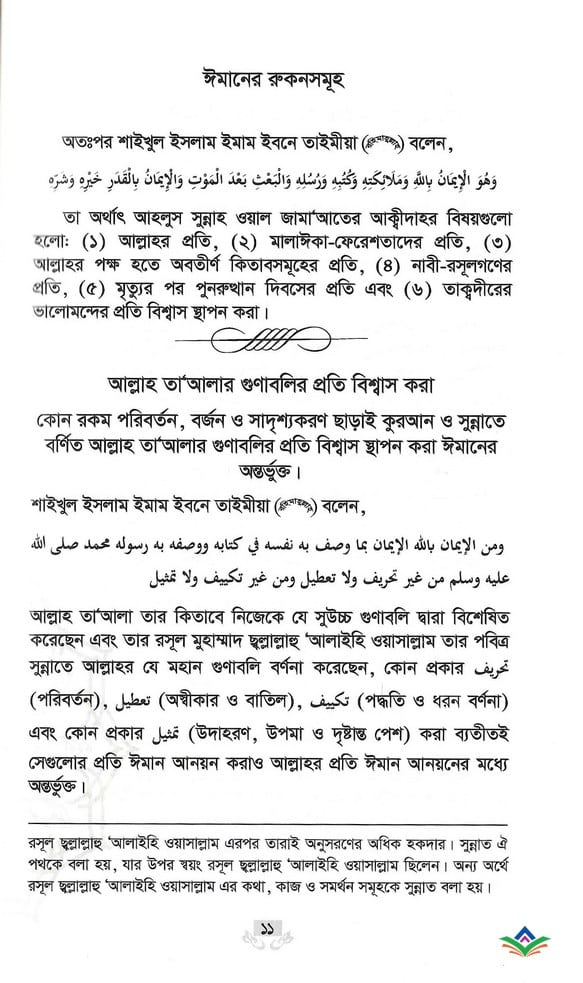 ঈমানের রুকনসমূহ
অতঃপর শাইখুল ইসলাম ইমাম ইবনে তাইমীয়া () বলেন,
وَهُوَ الْإِيمَانُ بِاللَّهِ وَمَلَائِكَتِهِ وَكُتُبِهِ وَرُسُلِهِ وَالْبَعْثِ بَعْدَ الْمَوْتِ وَالْإِيمَانُ بِالْقَدَرِ خَيْرِهِ وَشَرِّهِ
তা অর্থাৎ আহলুস সুন্নাহ ওয়াল জামা‘আতের আক্বীদাহর বিষয়গুলো
হলো: (১) আল্লাহর প্রতি, (২) মালাঈকা-ফেরেশতাদের প্রতি, (৩)
আল্লাহর পক্ষ হতে অবতীর্ণ কিতাবসমূহের প্রতি, (৪) নাবী-রসূলগণের
প্রতি, (৫) মৃত্যুর পর পুনরুত্থান দিবসের প্রতি এবং (৬) তাক্বদীরের
ভালোমন্দের প্রতি বিশ্বাস স্থাপন করা।
আল্লাহ তা‘আলার গুণাবলির প্রতি বিশ্বাস করা
কোন রকম পরিবর্তন, বর্জন ও সাদৃশ্যকরণ ছাড়াই কুরআন ও সুন্নাতে
বর্ণিত আল্লাহ তা‘আলার গুণাবলির প্রতি বিশ্বাস স্থাপন করা ঈমানের
অন্তর্ভুক্ত।
শাইখুল ইসলাম ইমাম ইবনে তাইমীয়া () বলেন,
ومن الإيمان بالله الإيمان بما وصف به نفسه في كتابه ووصفه به رسوله محمد صلى الله
عليه وسلم من غير تحريف ولا تعطيل ومن غير تكييف ولا تمثيل
আল্লাহ তা‘আলা তার কিতাবে নিজেকে যে সুউচ্চ গুণাবলি দ্বারা বিশেষিত
করেছেন এবং তার রসূল মুহাম্মাদ ছ্বল্লাল্লাহু ‘আলাইহি ওয়াসাল্লাম তার পবিত্র
সুন্নাতে আল্লাহর যে মহান গুণাবলি বর্ণনা করেছেন, কোন প্রকার تحريف
(পরিবর্তন), تعطيل (অস্বীকার ও বাতিল), تكييف (পদ্ধতি ও ধরন বর্ণনা)
এবং কোন প্রকার تمثيل (উদাহরণ, উপমা ও দৃষ্টান্ত পেশ) করা ব্যতীতই
সেগুলোর প্রতি ঈমান আনয়ন করাও আল্লাহর প্রতি ঈমান আনয়নের মধ্যে
অন্তর্ভুক্ত।
রসূল ছ্বল্লাল্লাহু ‘আলাইহি ওয়াসাল্লাম এরপর তারাই অনুসরণের অধিক হকদার। সুন্নাত ঐ
পথকে বলা হয়, যার উপর স্বয়ং রসূল ছ্বল্লাল্লাহু ‘আলাইহি ওয়াসাল্লাম ছিলেন। অন্য অর্থে
রসূল ছ্বল্লাল্লাহু ‘আলাইহি ওয়াসাল্লাম এর কথা, কাজ ও সমর্থন সমূহকে সুন্নাত বলা হয়।
১১